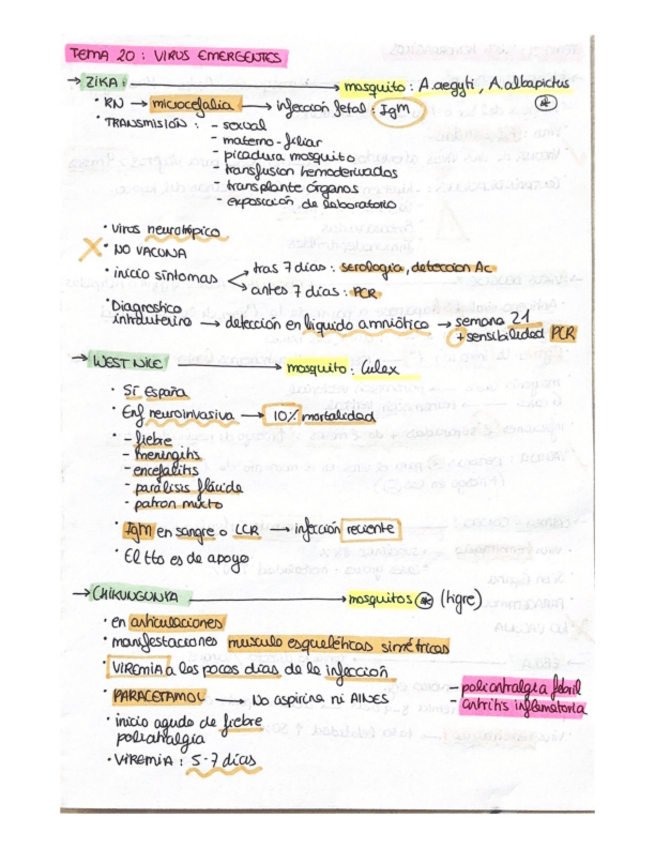 TEMA 20 : VIRUS EMERGENTES
→ ZIKA : → mosquito : A.aegyti, A.albopictus
· RN → microcefalia → infección fetal : IgM *
· TRANSMISIÓN : - sexual
- materno-filiar
- picadura mosquito
- transfusion hemoderivados
- transplante órganos
- exposición de laboratorio
· Virus neurotrópico
X · NO VACUNA
· inicio síntomas < tras 7 días : serología, deteccion Ac
antes 7 días : PCR
· Diagnostico
intrauterino → detección en liquido amniótico → semana 21
+ sensibilidad PCR
→ WEST NILE → mosquito : Culex
· Sí España
· Enf neuroinvasiva → 10% mortalidad
· - fiebre
- meningitis
- encefalitis
- parálisis flácida
- patron mixto
· IgM en sangre o LCR → infección reciente
· El tto es de apoyo
→ CHIKUNGUNYA → mosquitos * (tigre)
· en articulaciones
· manifestaciones musculo esqueléticas simétricas
· VIREMIA a los pocos dias de la infección
· PARACETAMOL → No aspirina ni AINES
- poliartralgia febril
- artritis inflamatoria
· inicio agudo de fiebre
poliartralgia
· VIREMIA : 5-7 días